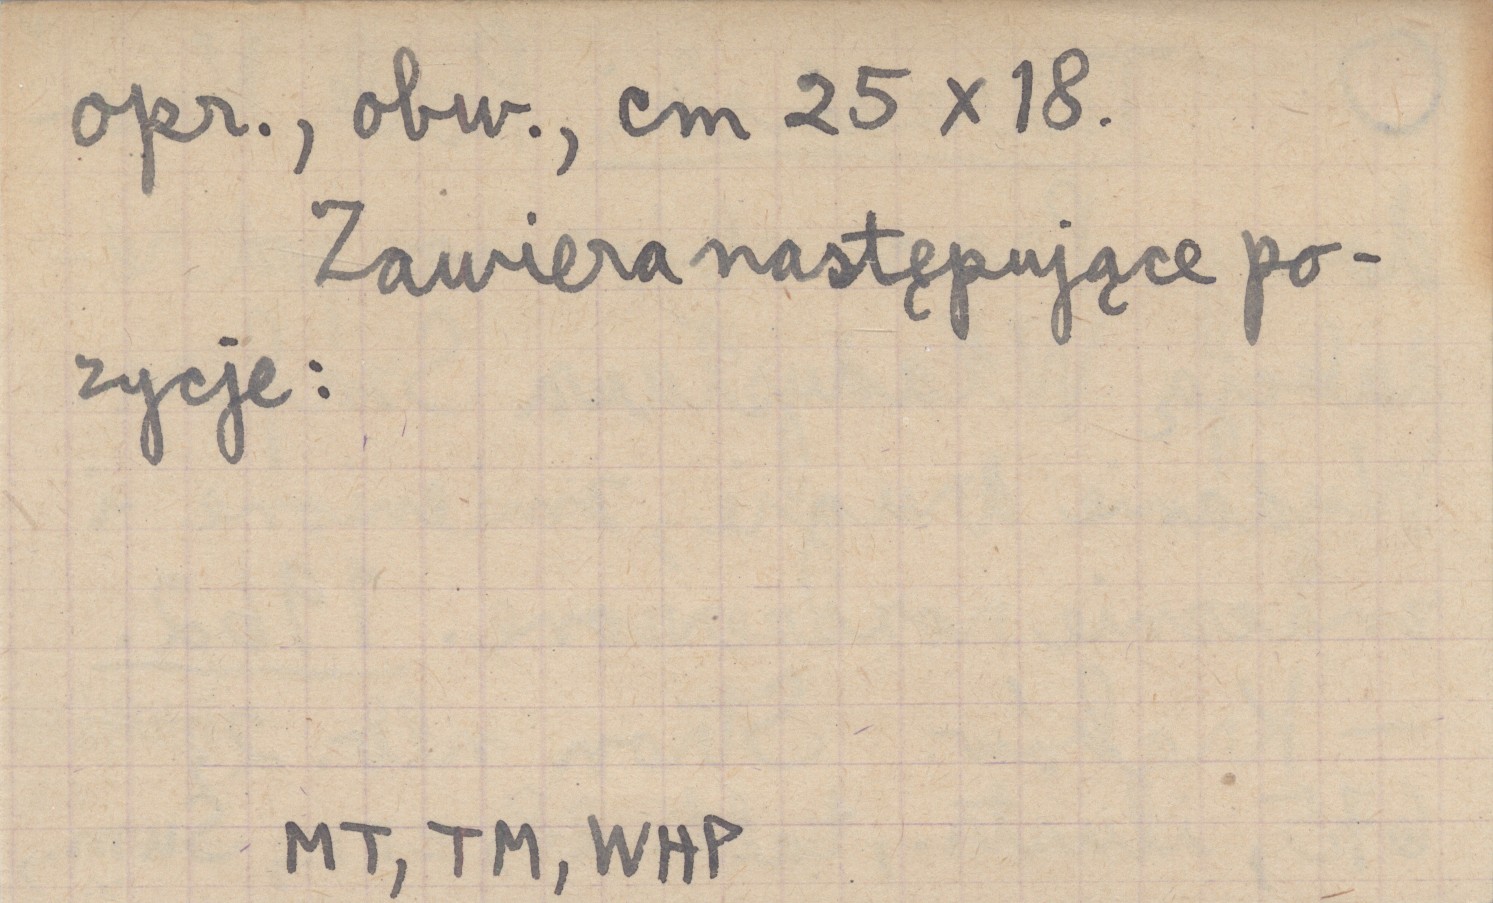 opr., obw., cm 25 x 18.
Zawiera następujące po-
zycje:
MT, TM, WHP